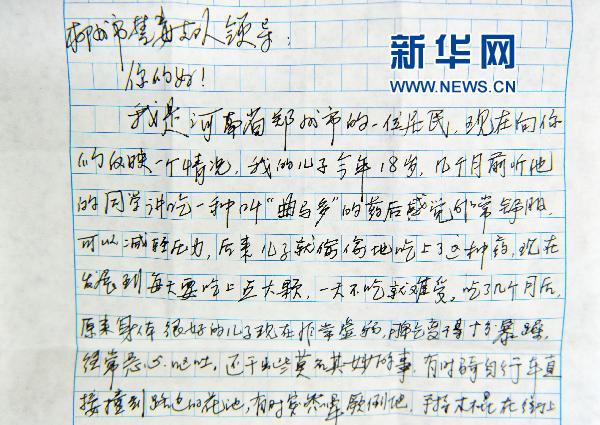 柳州市禁毒支队领导：
新华网
WWW.NEWS.CN
你们好！
我是河南省郑州市的一位居民，现在向你
们反映一个情况。我的儿子今年18岁，几个月前听他
的同学讲吃一种叫“曲马多”的药后感觉非常舒服，
可以减轻压力，后来儿子就偷偷地吃上了这种药，现在
发展到每天要吃上 颗，一天不吃就难受。吃了几个月后，
原来身体很好的儿子现在非常虚弱，脾气变得十分暴躁，
经常恶心呕吐，还干出些莫名其妙的事，有时骑自行车直
接撞到路边的花池，有时突然晕厥倒地，手持木棍在街上